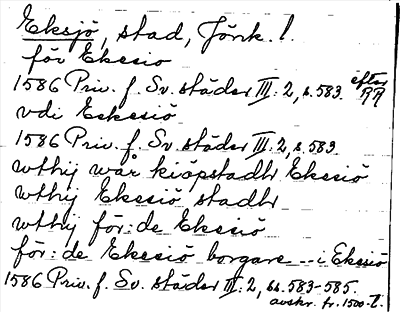 Eksjö, stad, Jönk. l.
för Ekesiö
1586 Priv. f. Sv. städer III: 2, s. 583. efter RR
vdi Eckesiö
1586 Priv. f. Sv. städer III: 2, s. 583
wthij wår kiöpstadh Ekesiö
wthij Ekesiö stadh
wthij för:de Ekesiö
för:de Ekesiö borgare -- i Eksiö
1586 Priv. f. Sv. städer III: 2, ss. 583-585.
avskr. fr. 1500-t.